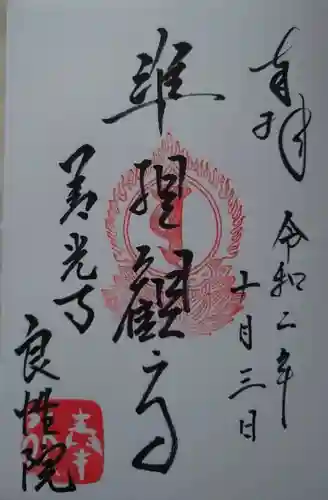 奉拝
令和二年
十月三日
准胝観音
善光寺
良性院